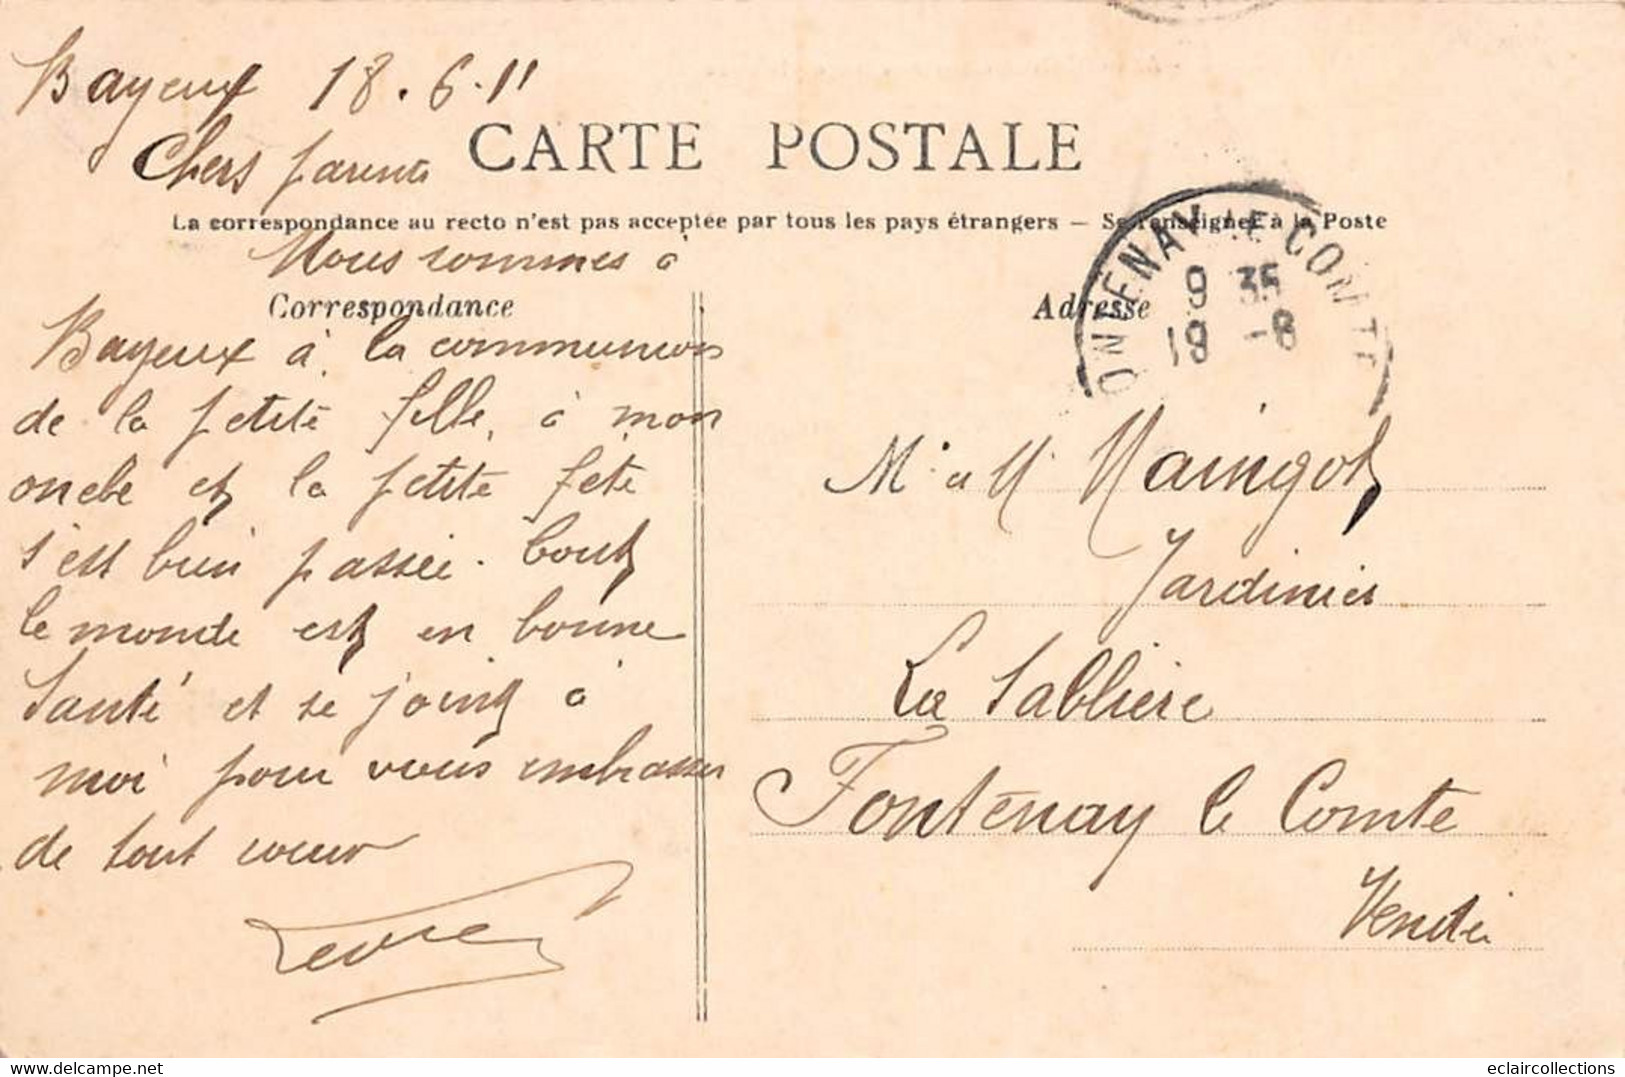 Bayeux 18.6.11
CARTE POSTALE
Chers parents
La correspondance au recto n'est pas acceptée par tous les pays étrangers — Se renseigner à la Poste
Nous sommes à
Correspondance
Bayeux à la communion
de la petite fille, à mon
oncle et la petite fête
s'est bien passée. tout
le monde est en bonne
santé et se joint à
moi pour vous embrasser
de tout coeur
Adresse
ONTENAY LE COMTE
9 35
19 -6
M. et M. Maingot
Jardinier
La Sablière
Fontenay le Comte
Vendée
eclaircollections